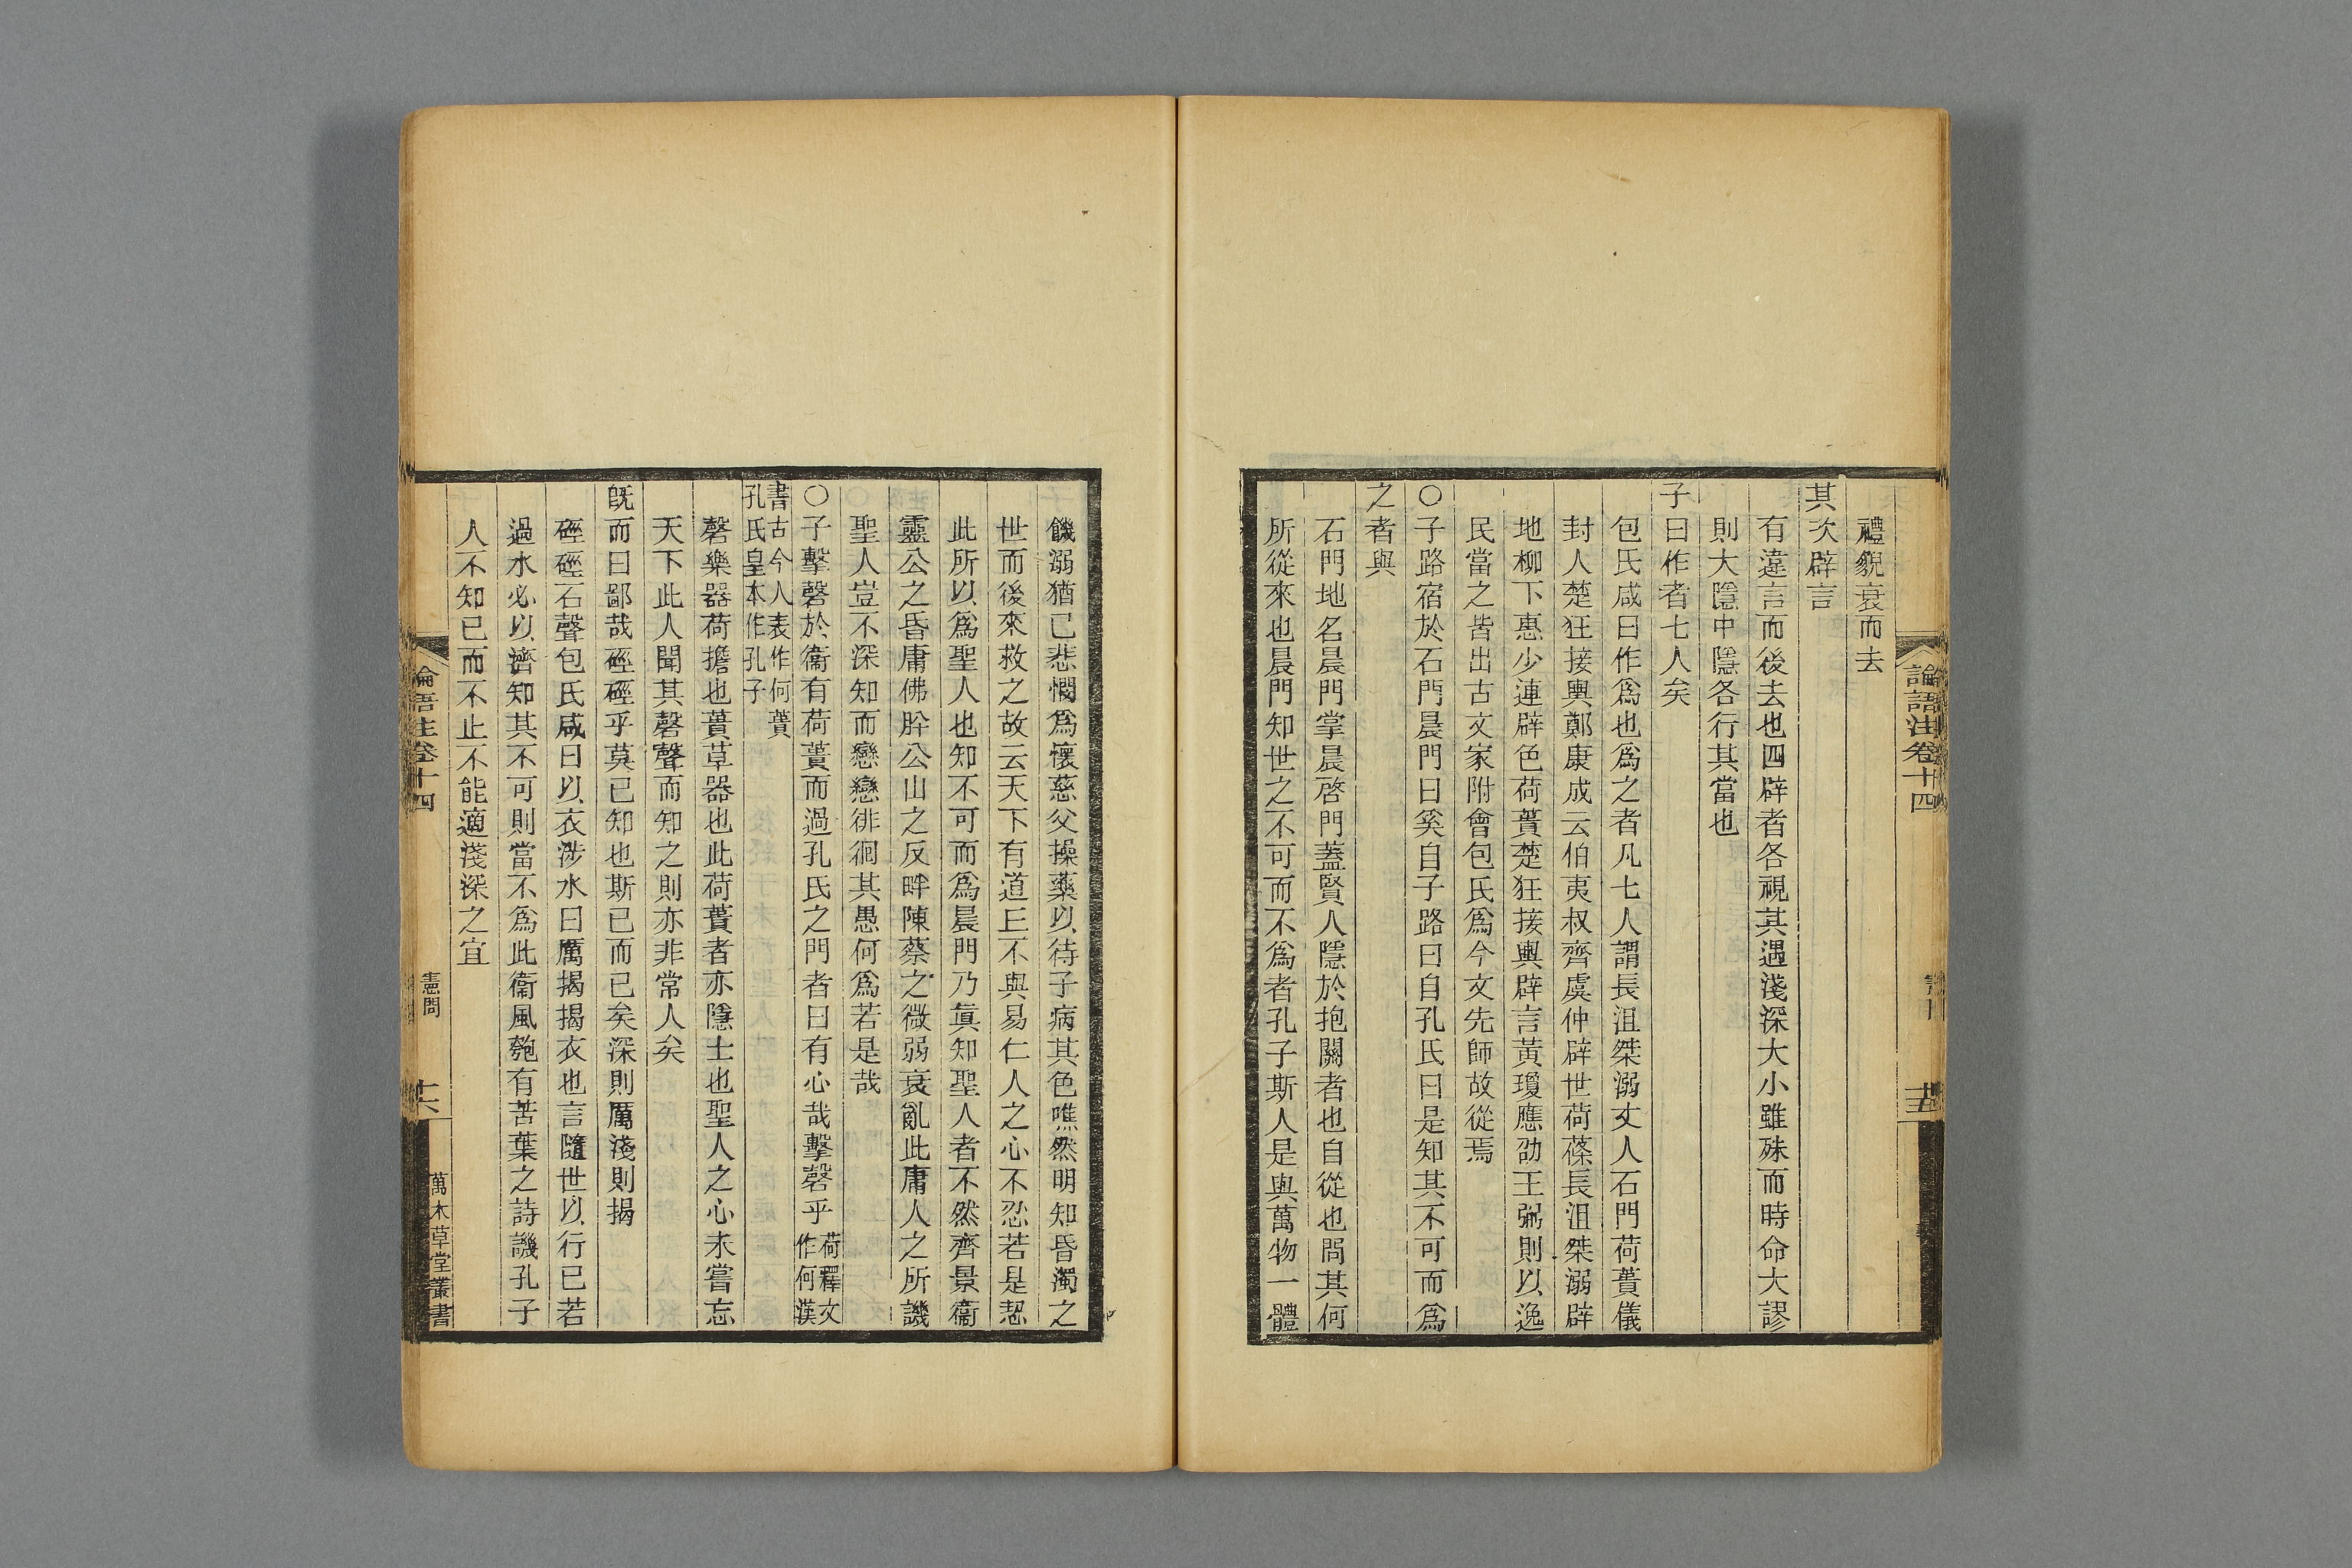 論語注卷十四
禮貌衰而去
其次辟言
有違言而後去也四辟者各視其遇淺深大小雖殊而時命大謬
則大隱中隱各行其當也
子曰作者七人矣
包氏咸曰作爲也爲之者凡七人謂長沮桀溺丈人石門荷蕢儀
封人楚狂接輿鄭康成云伯夷叔齊虞仲辟世荷蓧長沮桀溺辟
地柳下惠少連辟色荷蕢楚狂接輿辟言黃瓊應劭王弼則以逸
民當之皆出古文家附會包氏爲今文先師故從焉
〇子路宿於石門晨門曰奚自子路曰自孔氏曰是知其不可而爲
之者與
石門地名晨門掌晨啓門蓋賢人隱於抱關者也自從也問其何
所從來也晨門知世之不可而不爲者孔子斯人是與萬物一體
饑溺猶己悲憫爲懷慈父操藥以待子病其色噍然明知昏濁之
世而後來救之故云天下有道丘不與易仁人之心不忍若是恝
此所以爲聖人也知不可而爲晨門乃眞知聖人者不然齊景衞
靈公之昏庸佛肸公山之反畔陳蔡之微弱衰亂此庸人之所譏
聖人豈不深知而戀戀徘徊其愚何爲若是哉
〇子擊磬於衞有荷蕢而過孔氏之門者曰有心哉擊磬乎荷釋文作何漢
書古今人表作何蕢孔氏皇本作孔子
磬樂器荷擔也蕢草器也此荷蕢者亦隱士也聖人之心未嘗忘
天下此人聞其磬聲而知之則亦非常人矣
旣而曰鄙哉硜硜乎莫己知也斯已而已矣深則厲淺則揭
硜硜石聲包氏咸曰以衣涉水曰厲揭揭衣也言隨世以行己若
過水必以濟知其不可則當不爲此衞風匏有苦葉之詩譏孔子
人不知已而不止不能適淺深之宜
論語注卷十四
憲問
十六
萬木草堂叢書